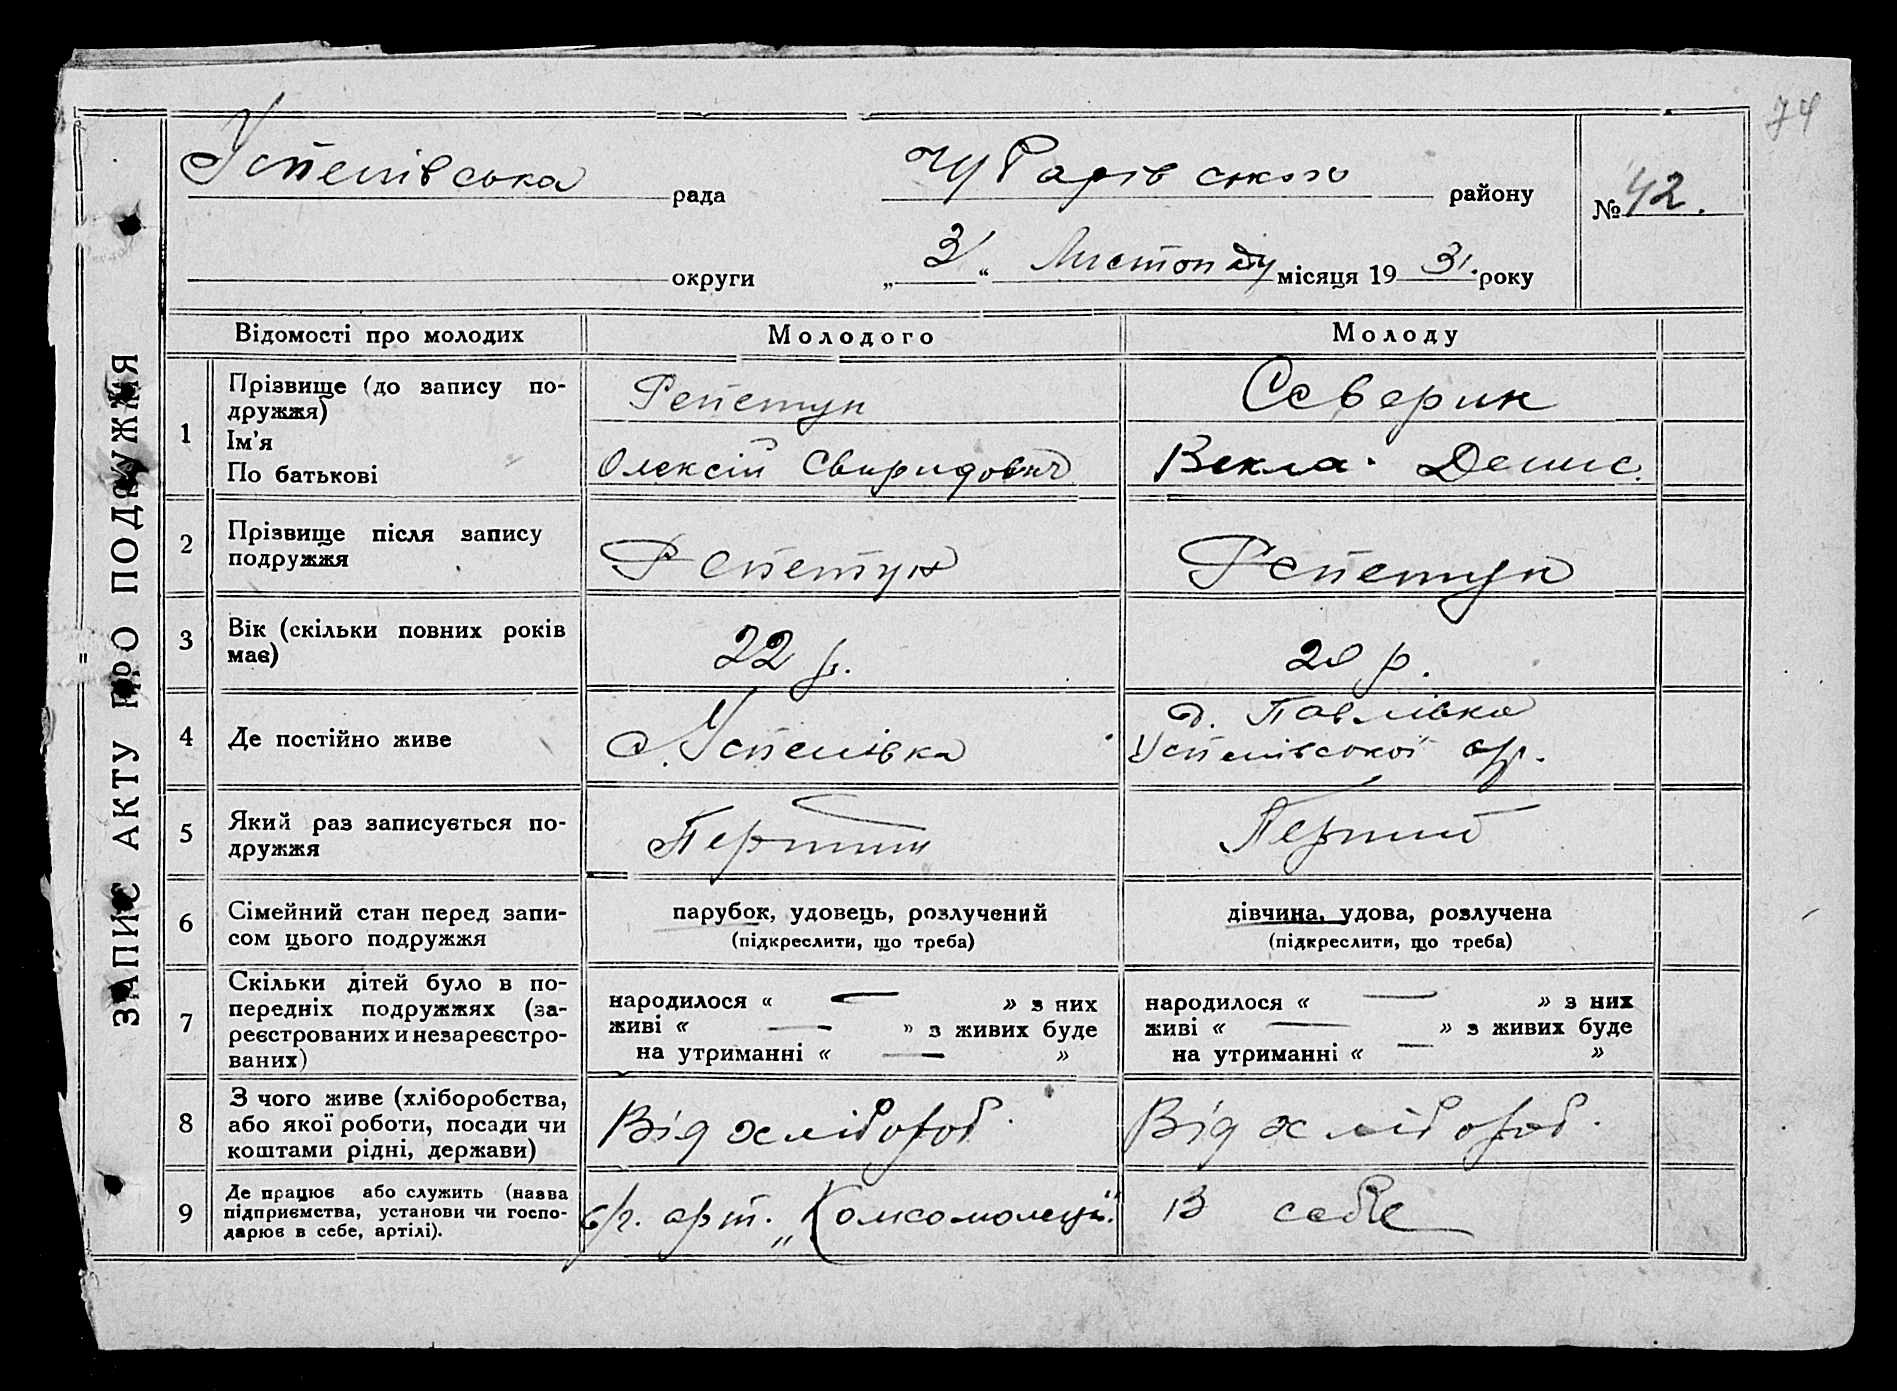 74
Успенівська рада Чубарівського району №42.
округи „3“ Листопаду місяця 1931. року
ЗАПИС АКТУ ПРО ПОДРУЖЖЯ
Відомості про молодих Молодого Молоду
1 Прізвище (до запису по-
дружжя)
Ім'я
По батькові
Репетун
Олексій Свиридович
Северин
Векла. Денис.
2 Прізвище після запису
подружжя
Репетун
Репетун
3 Вік (скільки повних років
має)
22 р.
20 р.
4 Де постійно живе
с. Успенівка
д. Павлівка
Успенівської с/р.
5 Який раз записується по-
дружжя
Перший
Перший
6 Сімейний стан перед запи-
сом цього подружжя
парубок, удовець, розлучений
(підкреслити, що треба)
дівчина, удова, розлучена
(підкреслити, що треба)
7 Скільки дітей було в по-
передніх подружжях (за-
реєстрованих и незареєстро-
ваних)
народилося « — » з них
живі « — » з живих буде
на утриманні « — »
народилося « — » з них
живі « — » з живих буде
на утриманні « — »
8 З чого живе (хліборобства,
або якої роботи, посади чи
коштами рідні, держави)
Від хлібороб.
Від хлібороб.
9 Де працює або служить (назва
підприємства, установи чи госпо-
дарює в себе, артілі).
с/г. арт. „Комсомолець".
В себе